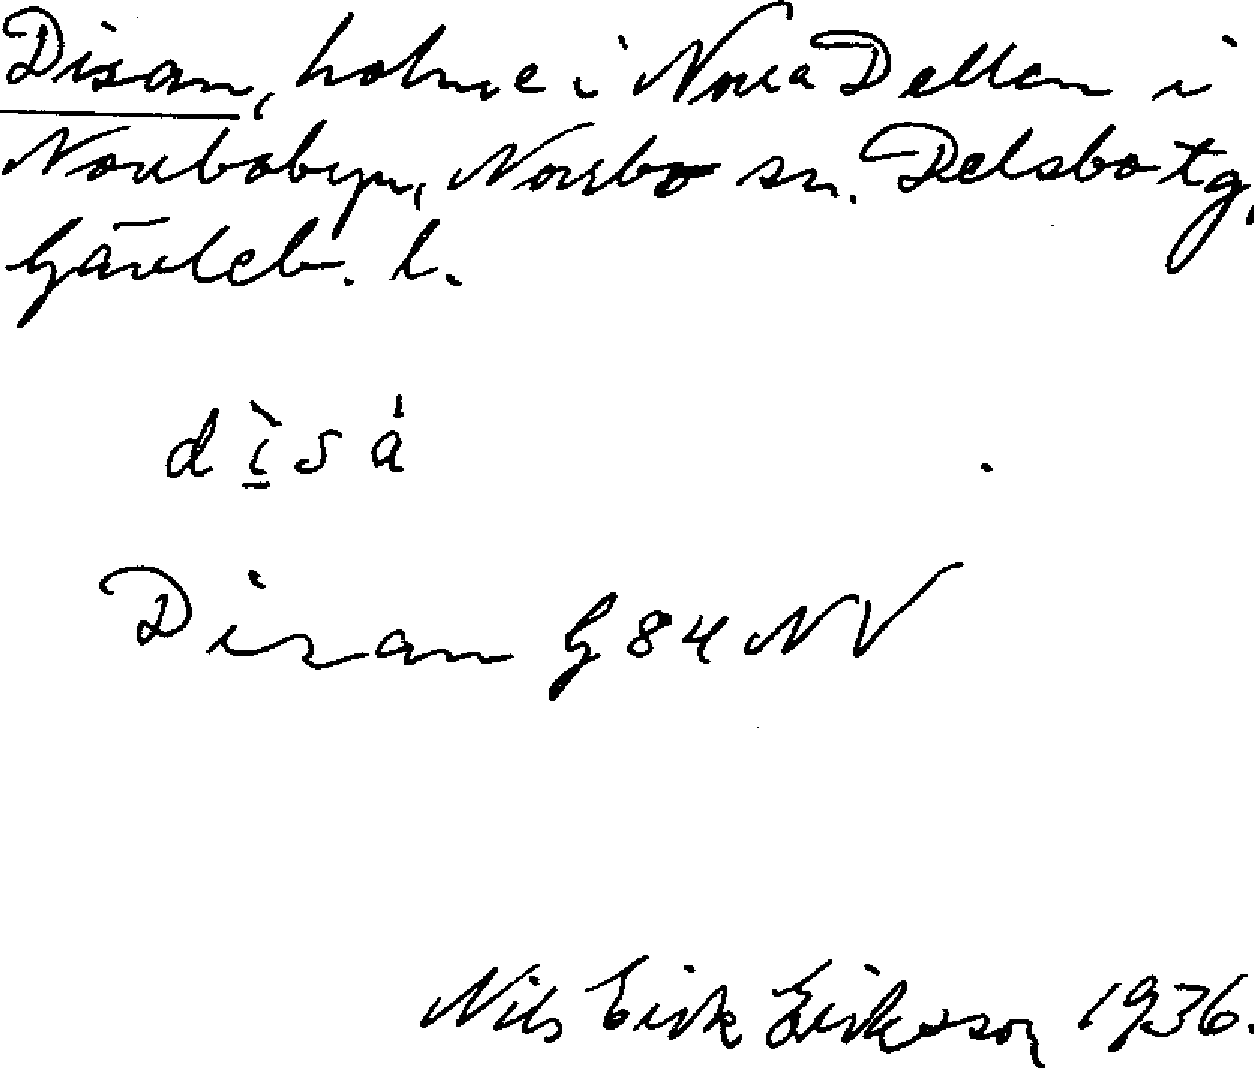 Disan, holme i Norra Dellen i
Norrbobyn, Norrbo sn. Delsbo tg,
Gävleb. l.
dı̀sȧ
Disan G 84 NV
Nils Erik Eriksson 1936.